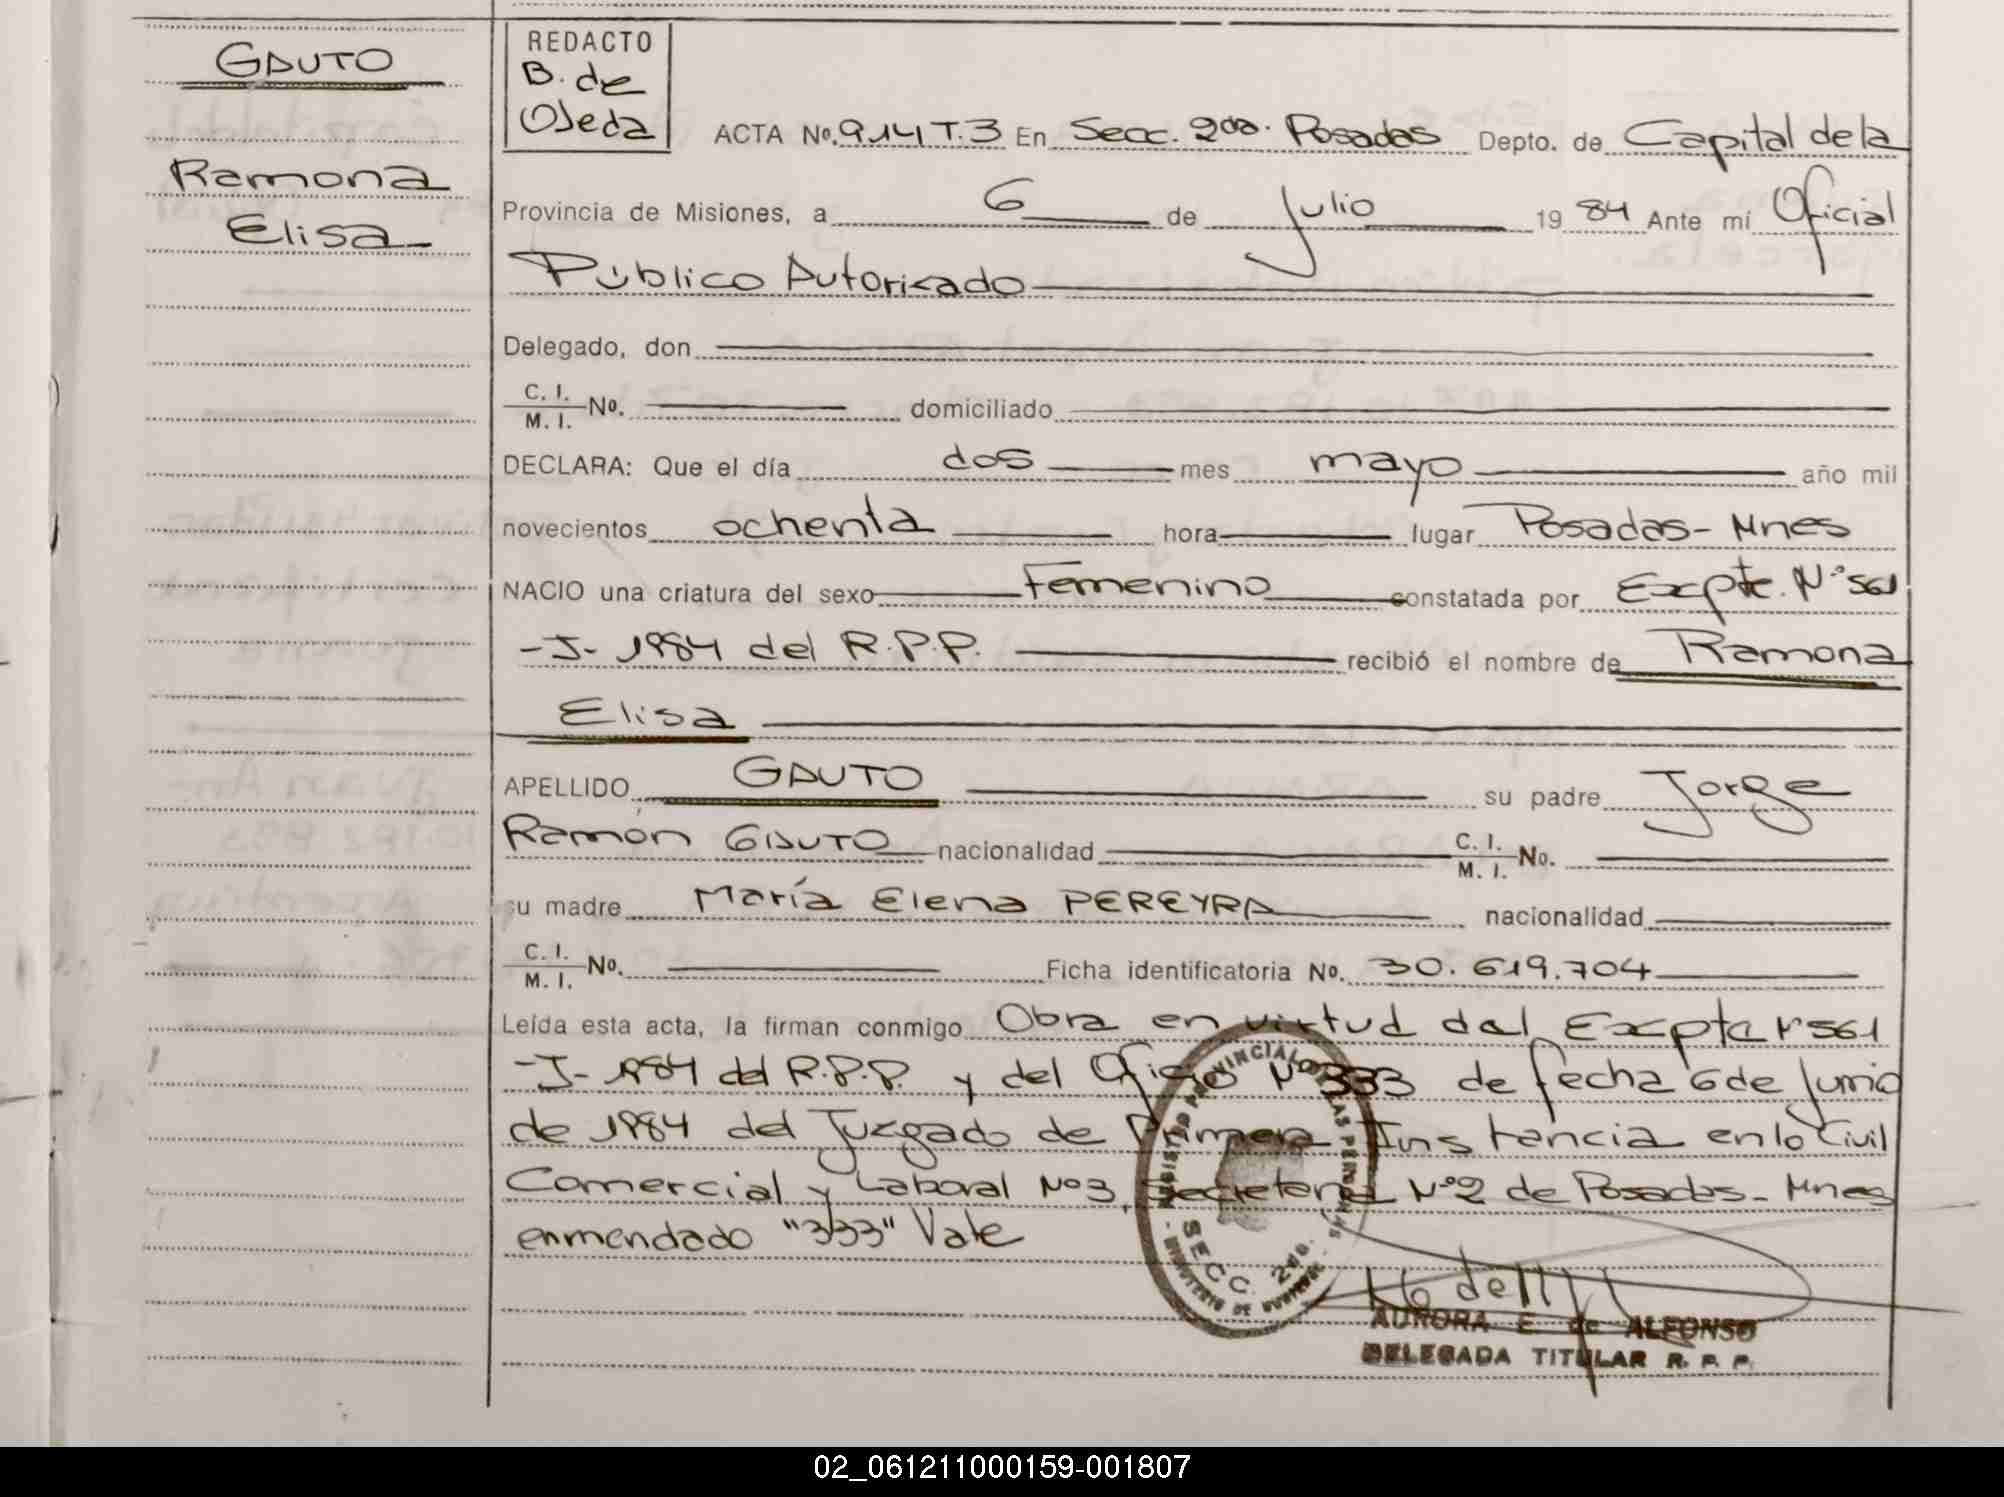 GAUTO
Ramona
Elisa
REDACTO
B. de
Ojeda
ACTA No. 914 T.3 En Secc. 2da. Posadas Depto. de Capital de la
Provincia de Misiones, a 6 de Julio 19 84 Ante mí Oficial
Público Autorizado
Delegado, don
C. I.
M. I. No. domiciliado
DECLARA: Que el día dos mes mayo año mil
novecientos ochenta hora lugar Posadas - Mnes
NACIO una criatura del sexo Femenino constatada por Excpte. N° 561
-J- 1984 del R.P.P. recibió el nombre de Ramona
Elisa
APELLIDO GAUTO su padre Jorge
Ramón GAUTO nacionalidad C. I. M. I. No.
su madre María Elena PEREYRA nacionalidad
C. I.
M. I. No. Ficha identificatoria No. 30.619.704
Leída esta acta, la firman conmigo Obra en virtud del Excpte N° 561
-J- 1984 del R.P.P. y del Oficio N° 333 de fecha 6 de Junio
de 1984 del Juzgado de Primera Instancia en lo Civil
Comercial y Laboral N°3, Secretaria N°2 de Posadas - Mnes
enmendado "333" Vale
REGISTRO PROVINCIAL DE LAS PERSONAS
SECC. 2da.
AURORA E. de ALFONSO
DELEGADA TITULAR R. P. P.
02_061211000159-001807